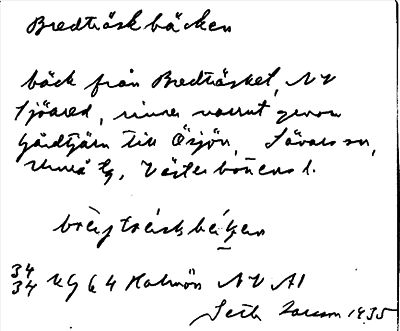 Bredträsk bäcken
bäck från Bredträsket, NV
Sjöared, rinner norrut genom
Gårdtjärn till Ösjön, Sävars sn,
Umeå tg, Västerbottens l.
34
34 kg 64 Holmön NV A1
Seth Larsson 1935